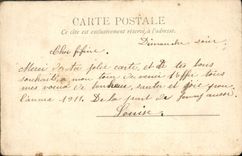 CARTE POSTALE
Ce côté est exclusivement réservé à l'adresse.
Dimanche soir
Cher
Merci de ta jolie carte, et de tes bons
souhaits, à mon tour je viens t'offrir tous
mes vœux de bonheur, santé et joie pour
l'année 1911. De la part de aussi
Louise